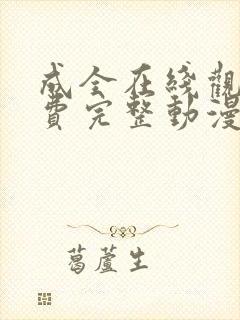 成全在綫觀
費完整動漫
葛蘆生